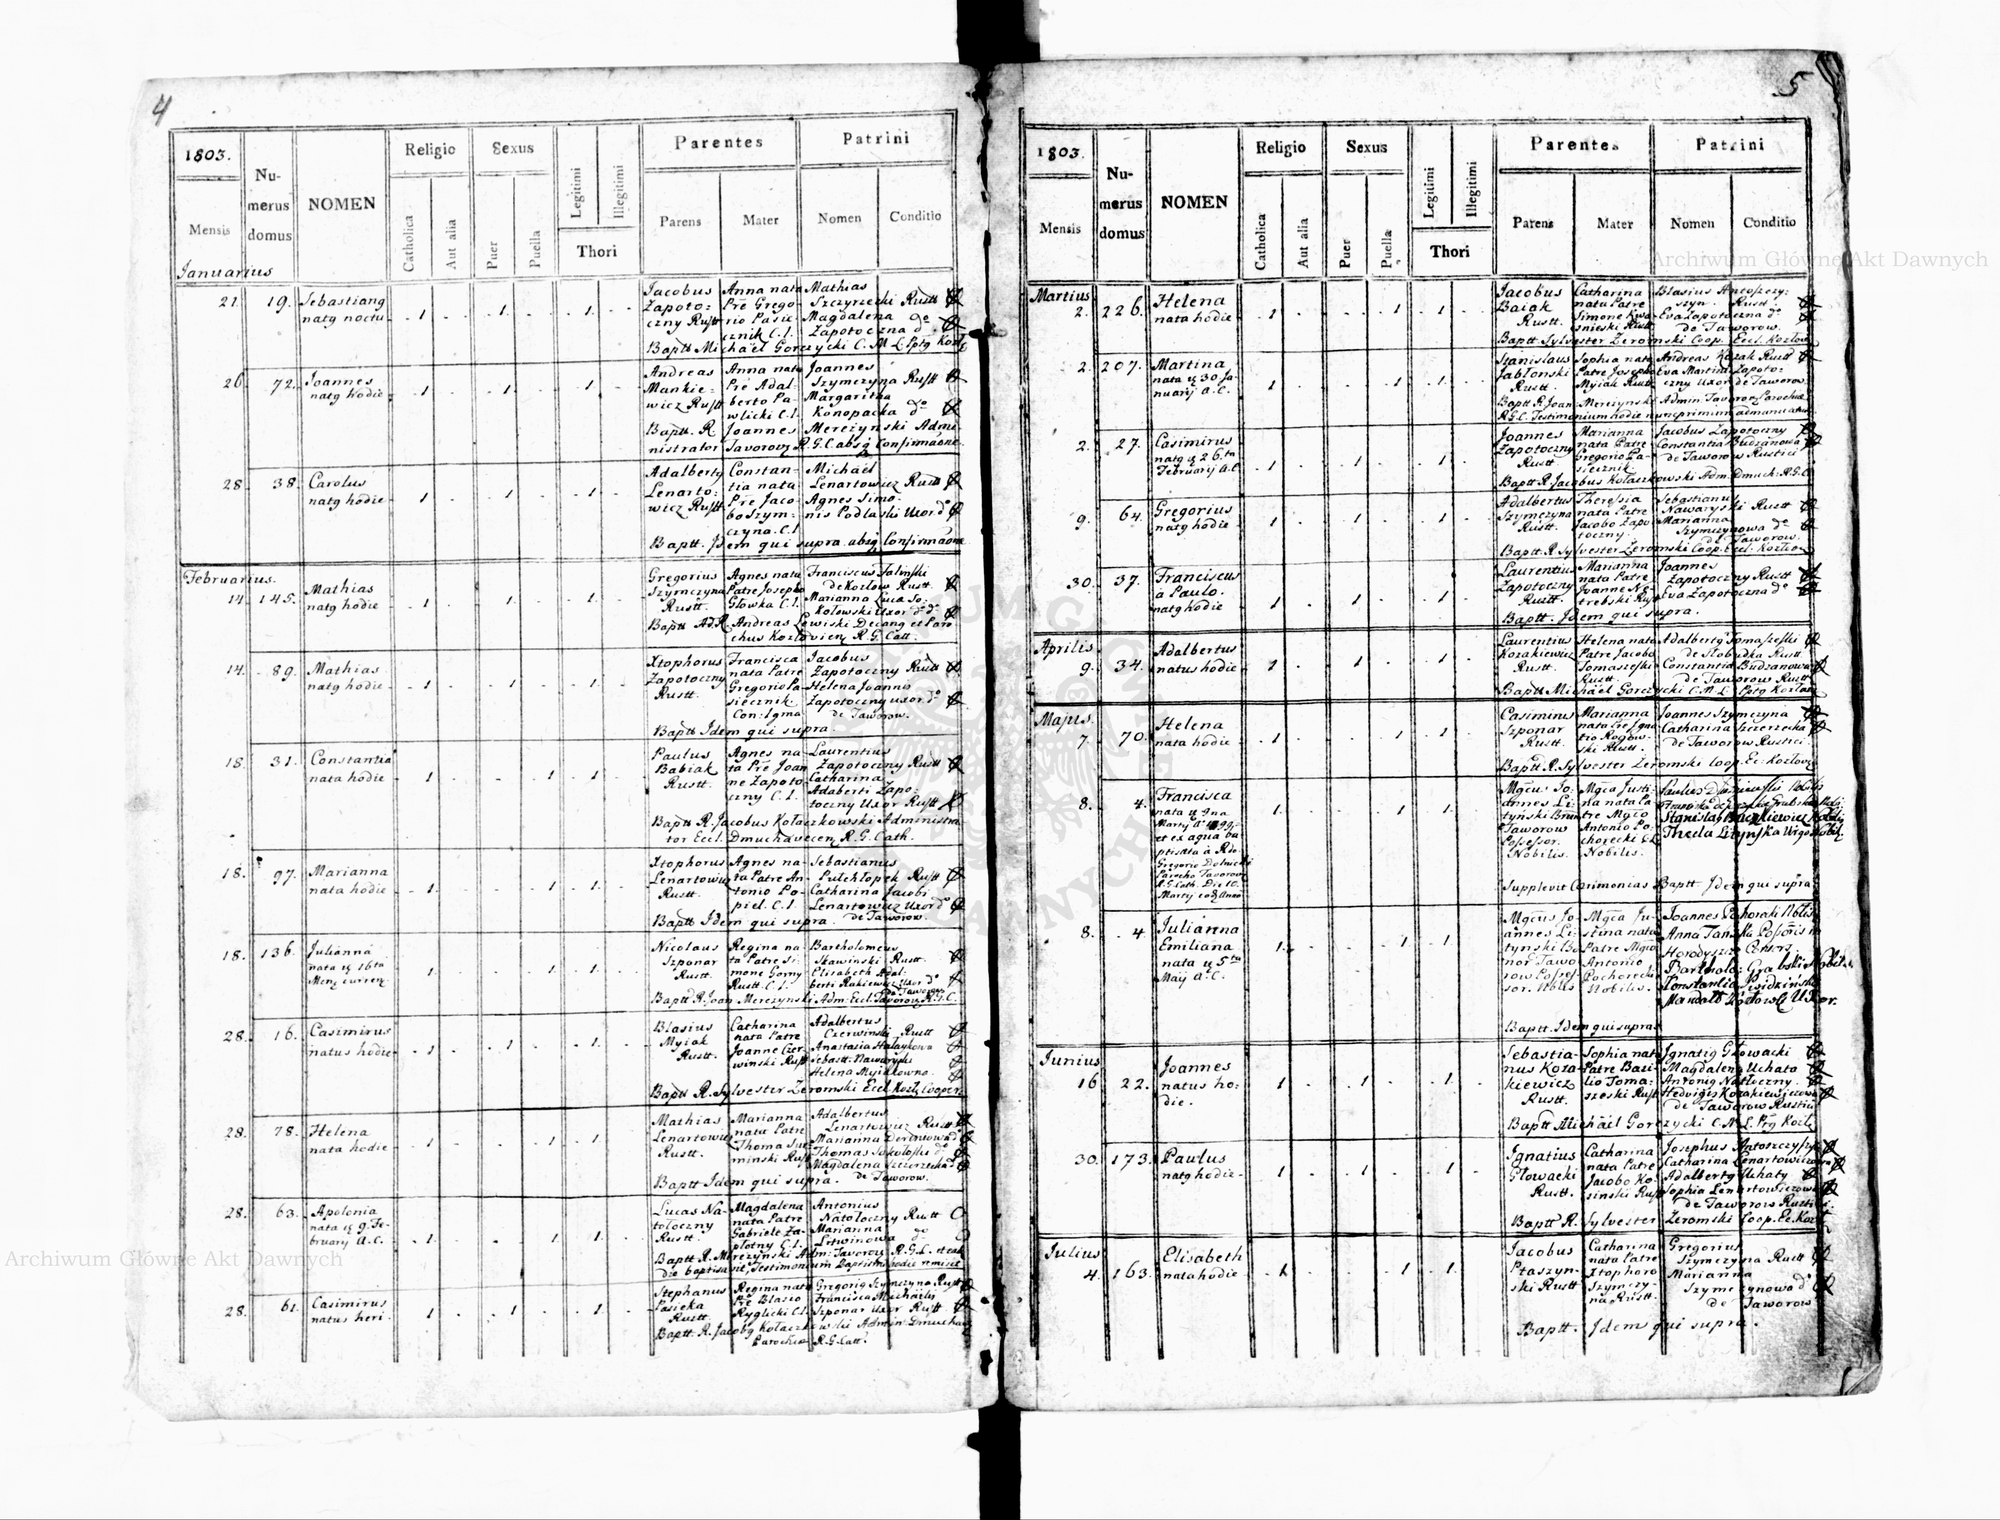 4
1803.
Mensis
Numerus domus
NOMEN
Religio
Catholica
Aut alia
Sexus
Puer
Puella
Legitimi
Illegitimi
Thori
Parentes
Parens
Mater
Patrini
Nomen
Conditio
Januarius
21. 19. Sebastiang
natg noctu
Jacobus Zapotoczny Rustt
Anna nata Pre Gregorio Pasiecznik C.l.
Mathias Szczyrzecki Rustt
Magdalena Zapotoczna do
Baptt Michael Gorczycki C. M. L.
26 72. Joannes
natg hodie
Andreas Mankiewicz Rustt
Anna nata Pre Adalberto Pawlicki C.l.
Joannes Szymczyna Rustt
Margaritha Konopacka do
Baptt. R. Joannes Mereżynski Administrator Tavorovg R.G.C. absq Confirmaone
28. 38. Carolus
natg hodie
Adalbertg Lenartowicz Rustt
Constantia nata Pre Jacobo Szymczyna C.l.
Michael Lenartowicz Rustt
Agnes Simonis Podlaski Uxor do
Baptt. Idem qui supra absq Confirmaone
Februarius.
14. 145. Mathias
natg hodie
Gregorius Szymczyna Rustt.
Agnes nata Patre Josepho Głowka C.l.
Franciscus Falinski de Kozlow Rustt.
Marianna Luca Sokołowski Uxor do
Baptt Andreas Lewiski Decang et Parochus Kozlovieng R. G. Catt.
14. 89. Mathias
natg hodie
Xtophorus Zapotoczny Rustt.
Francisca nata Patre Gregorio Pasiecznik
Jacobus Zapotoczny Rustt
Helena Joannis Zapotoczny uxor do
de Taworow.
Baptt Idem qui supra
18. 31. Constantia
nata hodie
Paulus Babiak Rustt.
Agnes nata Pre Joanne Zapotoczny C.l.
Laurentius Zapotoczny Rustt
Catharina Adalberti Zapotoczny Uxor Rustt
Baptt R. Jacobus Kołaczkowski Administrator Eccl. Dmuchavecen R. G. Cath.
18. 97. Marianna
nata hodie
Xtophorus Lenartowicz Rustt.
Agnes nata Patre Antonio Popiel. C.l.
Sebastianus Pulchłopek Rustt
Catharina Jacobi Lenartowicz Uxor do
de Taworow.
Baptt Idem qui supra.
18. 136. Julianna
nata 16ta
Mens curren.
Nicolaus Szponar Rustt.
Regina nata Patre Simone Gorny Rustt. C.l.
Bartholomeus Sławinski Rustt.
Elisabeth Adalberti Rakiewicz Uxor do
de Taworow
Baptt R. Joan Merezynski Adm: Eccl Tavorovg R.G.C.
28. 16. Casimirus
natus hodie
Blasius Myiak Rustt.
Catharina nata Patre Joanne Czerwinski Rustt
Adalbertus Czerwinski Rustt
Anastasia
Sebastt. Nawaryski
Helena Myiakowna.
Baptt R. Sylvester Zeromski Eccl. Kozl. Cooper
28. 78. Helena
nata hodie
Mathias Lenartowicz Rustt.
Marianna nata Patre Thoma Rustt
Adalbertus Lenartowicz Rustt
Marianna
Thomas Sokołoski do
Magdalena Szczerzecka
de Taworow.
Baptt Idem qui supra.
28. 63. Apolonia
nata 9. Februarij A.C.
Lucas Natołoczny Rustt.
Magdalena nata Patre Gabriele Zapłotny C.l.
Antonius Natołoczny Rustt
Marianna Litwinowa do
Baptt R. Mereżynski Adm: Tavorov R. G. C.
28. 61. Casimirus
natus heri
Stephanus Pasieka Rustt.
Regina nata Pre Blasio Ryglicki C.l.
Gregorig Szymczyna Rustt
Francisca Michaelis Szponar Uxor Rustt
Baptt. R. Jacobg Kołaczkowski Admin: Dmuchav
Parochiae R.G. Catt.
5
1803.
Mensis
Numerus domus
NOMEN
Religio
Catholica
Aut alia
Sexus
Puer
Puella
Legitimi
Illegitimi
Thori
Parentes
Parens
Mater
Patrini
Nomen
Conditio
Martius
2. 226. Helena
nata hodie
Jacobus Baiak Rustt.
Catharina nata Patre Simone Kwasnieski Rustt
Blasius Antoszczyszyn. Rustt.
Eva Zapotoczna do
de Taworow.
Baptt Sylvester Zeromski Coop. Eccl. Kozlow
2. 207. Martina
nata 30 Januarij A.C.
Stanislaus Jabłonski Rustt.
Sophia nata Patre Josepho Myiak Rustt
Andreas Kozak Rustt
Eva Martini Zapotoczny Uxor de Taworow.
Baptt R. Joan Merezynski Admin: Tavorov Parochiae
R.G.C. Testimonium hodie nunc primum ad manu datum
2. 27. Casimirus
natg 26.ta
Februarij A.C.
Joannes Zapotoczny Rustt.
Marianna nata Patre Gregorio Pasiecznik
Jacobus Zapotoczny
Constantia Budzanowa
de Taworow Rustici
Baptt R. Jacobus Kołaczkowski Adm. Dmuch: R.G.C.
9. 64. Gregorius
natg hodie
Adalbertus Szymczyna Rustt.
Theressia nata Patre Jacobo Zapotoczny
Sebastianus Nawaryski Rustt
Marianna Szymczynowa do
de Taworow.
Baptt. R. Sylvester Zeromski Coop. Eccl. Kozlov
30. 37. Franciscus
a Paulo.
natg hodie
Laurentius Zapotoczny Rustt.
Marianna nata Patre Joanne Rustt
Joannes Zapotoczny Rustt
Eva Zapotoczna do
Baptt. Idem qui supra.
Aprilis
9. 34. Adalbertus
natus hodie
Laurentius Kozakiewicz Rustt.
Helena nata Patre Jacobo Tomaszeski Rustt.
Adalbertg Tomaszeski
de Słobudka Rustt.
Constantia Budzanowa
de Taworow Rustt
Baptt Michael Gorczycki C. M. L.
Majus.
7 70. Helena
nata hodie
Casimirus Szponar Rustt.
Marianna nata Pre Ignatio Rogowski Rustt.
Joannes Szymczyna
Catharina Szczerzecka
de Taworow Rustici.
Baptt R. Sylvester Zeromski Coop. Ec. Kozlov
8. 4. Francisca
nata 9na
Martij
et ex aqua baptisata a Rdo
Gregorio
Parocho Tavorow
R.G. Cath. Die 10.
Martij
Mgcus Joannes Lityński Taworow Possessor. Nobilis
Mgca Justina nata Patre Mgco Antonio Pohorecki Nobilis.
Stanislaus Nobilis
Thecla Lityńska Virgo Nobil.
Supplevit Ceremonias Baptt Idem qui supra
8. 4 Julianna
Emiliana
nata 5ta
Maij A.C.
Mgcus Joannes Lityński Taworow Possessor. Nblis
Mgca Justina nata Patre Mgco Antonio Pochorecki Nobilis.
Joannes Pohorski Nblis
Anna
Bartholo: Grabski Nobilis
Konstantia
Uxor.
Baptt. Idem qui supra
Junius
16 22. Joannes
natus hodie.
Sebastianus Kozakiewicz Rustt.
Sophia nata Patre Bazilio Tomaszeski Rustt
Ignatig Głowacki
Magdalena Uchata
Antonig Natłoczny
Hedvigis Kozakiewiczowa
de Taworow Rustici
Baptt Michael Gorczycki C. M. L.
30. 173. Paulus
natg hodie
Ignatius Głowacki Rustt.
Catharina nata Patre Jacobo Kosinski Rustt
Josephus Antoszczyszyn
Catharina Lenartowiczowa
Adalbertg Uchaty
Sophia Lenartowiczowa
de Taworow Rustici
Baptt R. Sylvester Zeromski Coop. Ec. Kozl
Julius
4. 163. Elisabeth
nata hodie
Jacobus Ptaszynski Rustt
Catharina nata Patre Xtophoro Szymczyna Rustt.
Gregorius Szymczyna Rustt
Marianna Szymczynowa do
de Taworow
Baptt. Idem qui supra.
Archiwum Główne Akt Dawnych
Archiwum Główne Akt Dawnych